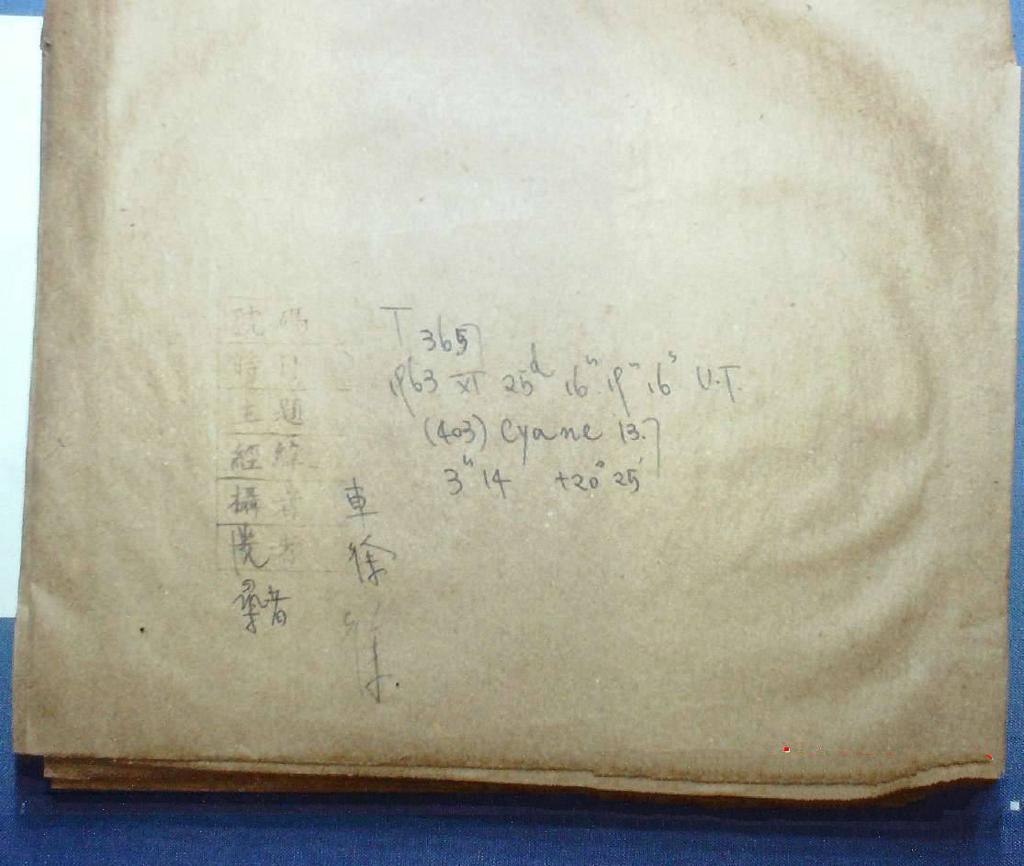 號碼
時日
主題
經緯
攝者
T 3657
1963 XI 25d 16h 19m 16s U.T.
(403) Cyane 13.7
3h 14 +20° 25'
車
徐